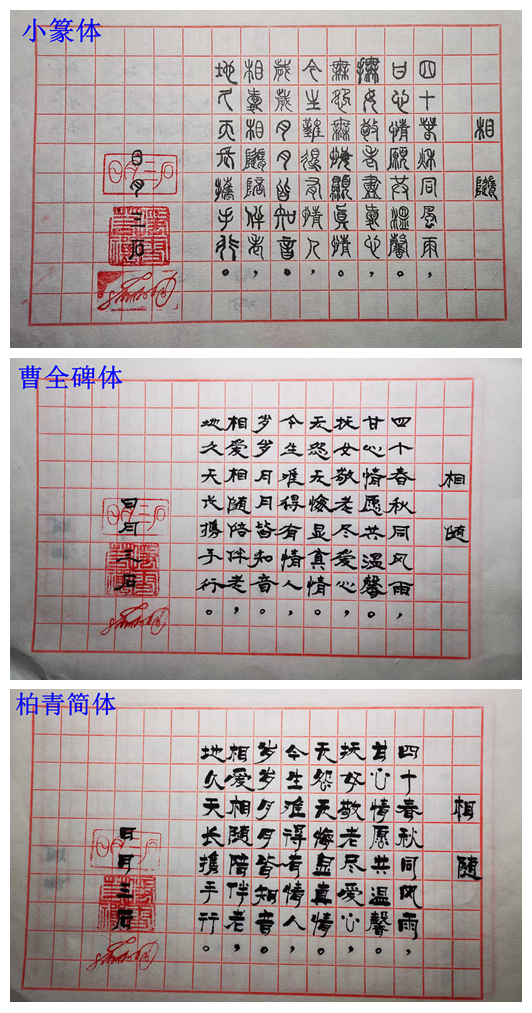 小篆体
相隨
四十春秋同風雨，
甘心情願共溫馨。
撫女敬老盡愛心，
無怨無悔顯真情。
今生難得有情人，
歲歲月月皆知音。
相愛相隨陪伴老，
地久天長攜手行。
日月三石
曹全碑体
相随
四十春秋同风雨，
甘心情愿共温馨。
抚女敬老尽爱心，
无怨无悔显真情。
今生难得有情人，
岁岁月月皆知音。
相爱相随陪伴老，
地久天长携手行。
日月三石
柏青简体
相随
四十春秋同风雨，
甘心情愿共温馨。
抚女敬老尽爱心，
无怨无悔显真情。
今生难得有情人，
岁岁月月皆知音。
相爱相随陪伴老，
地久天长携手行。
日月三石